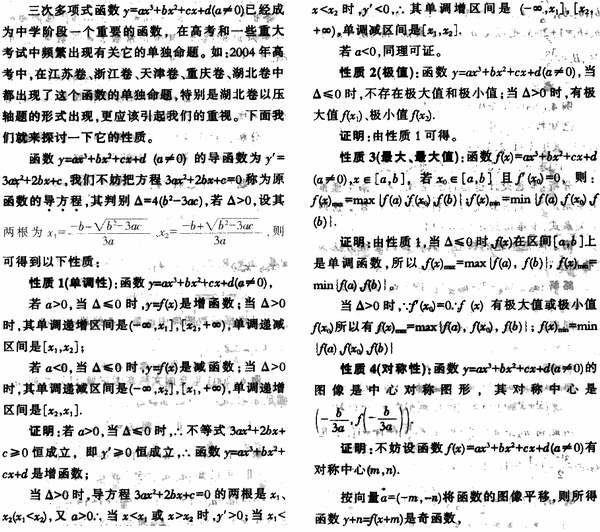 三次多项式函数 y=ax³+bx²+cx+d(a≠0)已经成
为中学阶段一个重要的函数，在高考和一些重大
考试中频繁出现有关它的单独命题。如:2004年高
考中,在江苏卷、浙江卷、天津卷、重庆卷、湖北卷中
都出现了这个函数的单独命题,特别是湖北卷以压
轴题的形式出现,更应该引起我们的重视。下面我
们就来探讨一下它的性质。
函数 y=ax³+bx²+cx+d (a≠0) 的导函数为 y′=
3ax²+2bx+c,我们不妨把方程 3ax²+2bx+c=0 称为原
函数的导方程,其判别 Δ=4(b²-3ac),若 Δ>0,设其
两根为 x₁=(-b-√(b²-3ac))/3a ,x₂=(-b+√(b²-3ac))/3a ,则
可得到以下性质:
性质 1(单调性):函数 y=ax³+bx²+cx+d(a≠0),
若 a>0,当 Δ≤0 时,y=f(x)是增函数;当 Δ>0
时,其单调递增区间是(-∞,x₁],[x₂,+∞),单调递减
区间是[x₁,x₂];
若 a<0,当 Δ≤0 时,y=f(x)是减函数;当 Δ>0
时,其单调递减区间是(-∞,x₂],[x₁,+∞),单调递增
区间是[x₂,x₁].
证明:若 a>0,当 Δ≤0 时,∴不等式 3ax²+2bx+
c≥0 恒成立，即 y′≥0 恒成立,∴函数 y=ax³+bx²+
cx+d 是增函数;
当 Δ>0 时,导方程 3ax²+2bx+c=0 的两根是 x₁、
x₂(x₁<x₂),又 a>0.∴当 x<x₁ 或 x>x₂ 时,y′>0;当 x₁<
x<x₂ 时,y′<0,∴其单调增区间是 (-∞,x₁],[x₂,
+∞),单调减区间是[x₁,x₂].
若 a<0,同理可证。
性质 2(极值):函数 y=ax³+bx²+cx+d(a≠0),当
Δ≤0 时,不存在极大值和极小值;当 Δ>0 时,有极
大值 f(x₁)、极小值 f(x₂).
证明:由性质 1 可得。
性质 3(最大、最大值):函数 f(x)=ax³+bx²+cx+d
(a≠0),x∈[a,b]，若 x₀∈[a,b] 且 f′(x₀)=0，则:
f(x)max=max{f(a),f(x₀),f(b)};f(x)min=min{f(a),f(x₀),f
(b)}.
证明:由性质 1,当 Δ≤0 时,f(x)在区间[a,b]上
是单调函数,所以 f(x)max=max{f(a), f(b)}; f(x)min=
min{f(a),f(b)}.
当 Δ>0 时,∴f′(x₀)=0.∴f (x) 有极大值或极小值
f(x₀)所以有 f(x)max=max{f(a), f(x₀), f(b)}; f(x)min=min
{f(a),f(x₀),f(b)}
性质 4(对称性):函数 y=ax³+bx²+cx+d(a≠0)的
图像是中心对称图形，其对称中心是
(-b/3a, f(-b/3a)).
证明:不妨设函数 f(x)=ax³+bx²+cx+d(a≠0)有
对称中心(m,n).
按向量 a=(-m,-n)将函数的图像平移,则所得
函数 y+n=f(x+m)是奇函数,